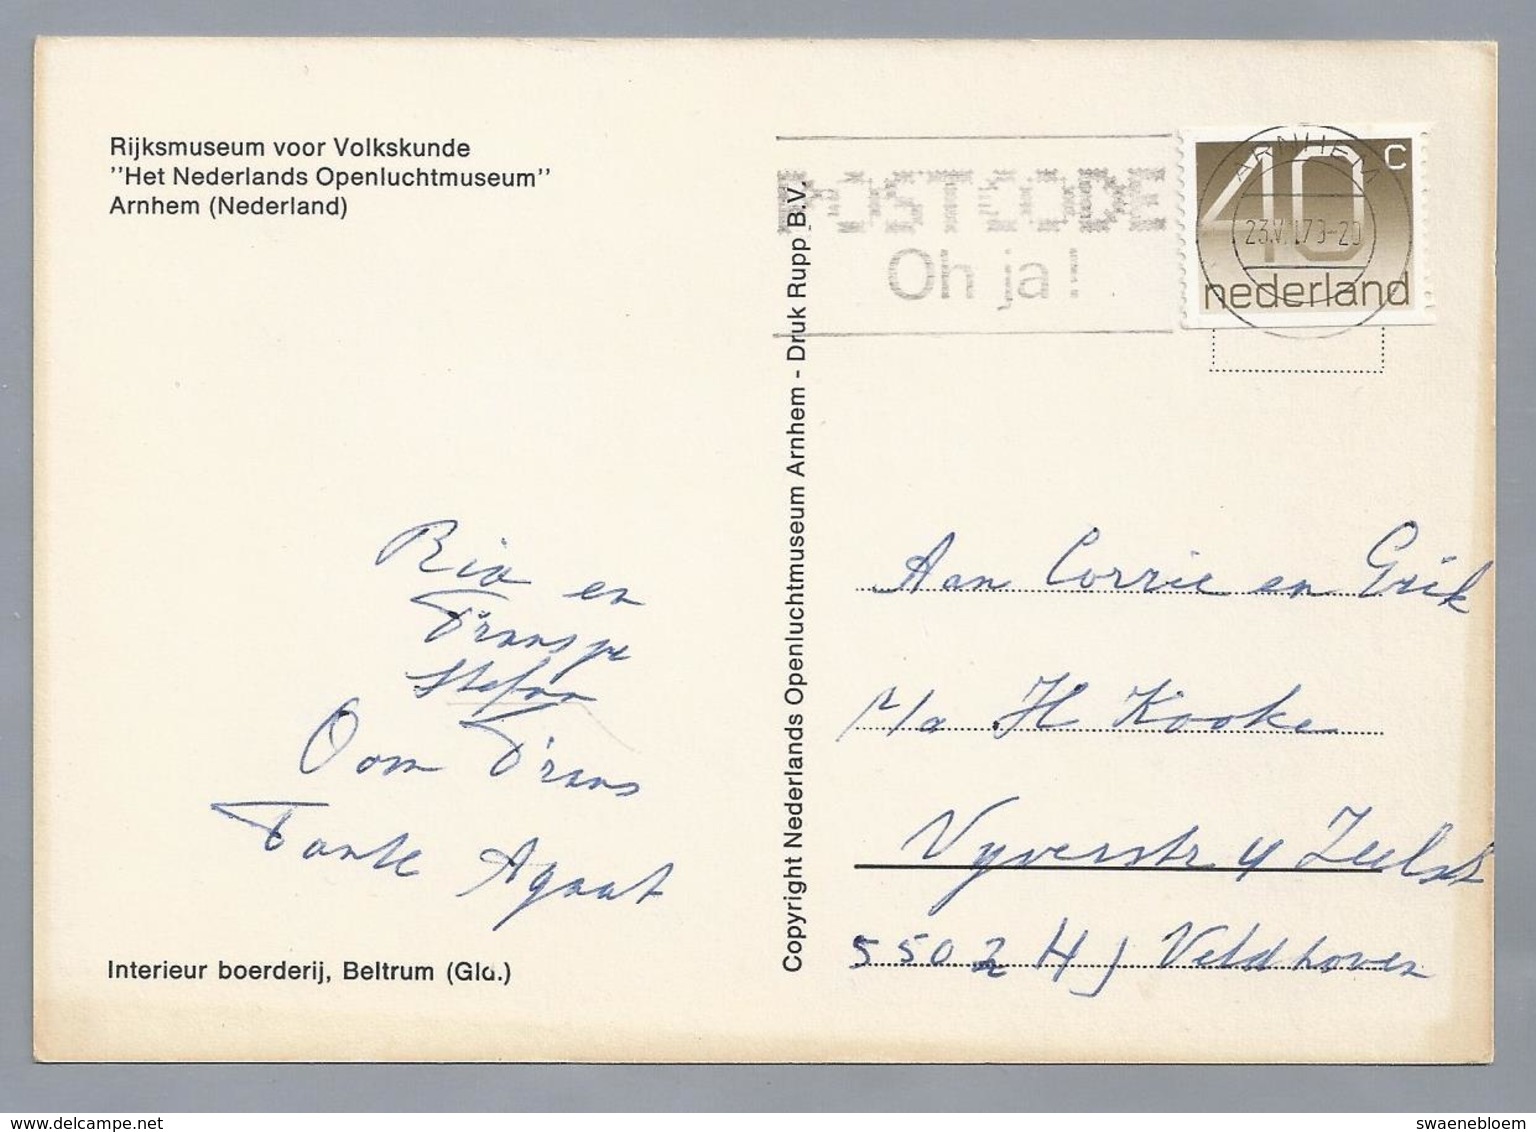 Rijksmuseum voor Volkskunde
''Het Nederlands Openluchtmuseum''
Arnhem (Nederland)
POSTCODE
Oh ja!
ARNHEM
40 c
nederland
Copyright Nederlands Openluchtmuseum Arnhem - Druk Rupp B.V.
Ria en
Fransje
Stefan
Oom Frans
Tante Agaat
Aan Corrie en Erik
p/a H Kooke
Vyverstr 4 Zeelst
5502 HJ Veldhoven
Interieur boerderij, Beltrum (Gld.)
www.delcampe.net
swaenebloem